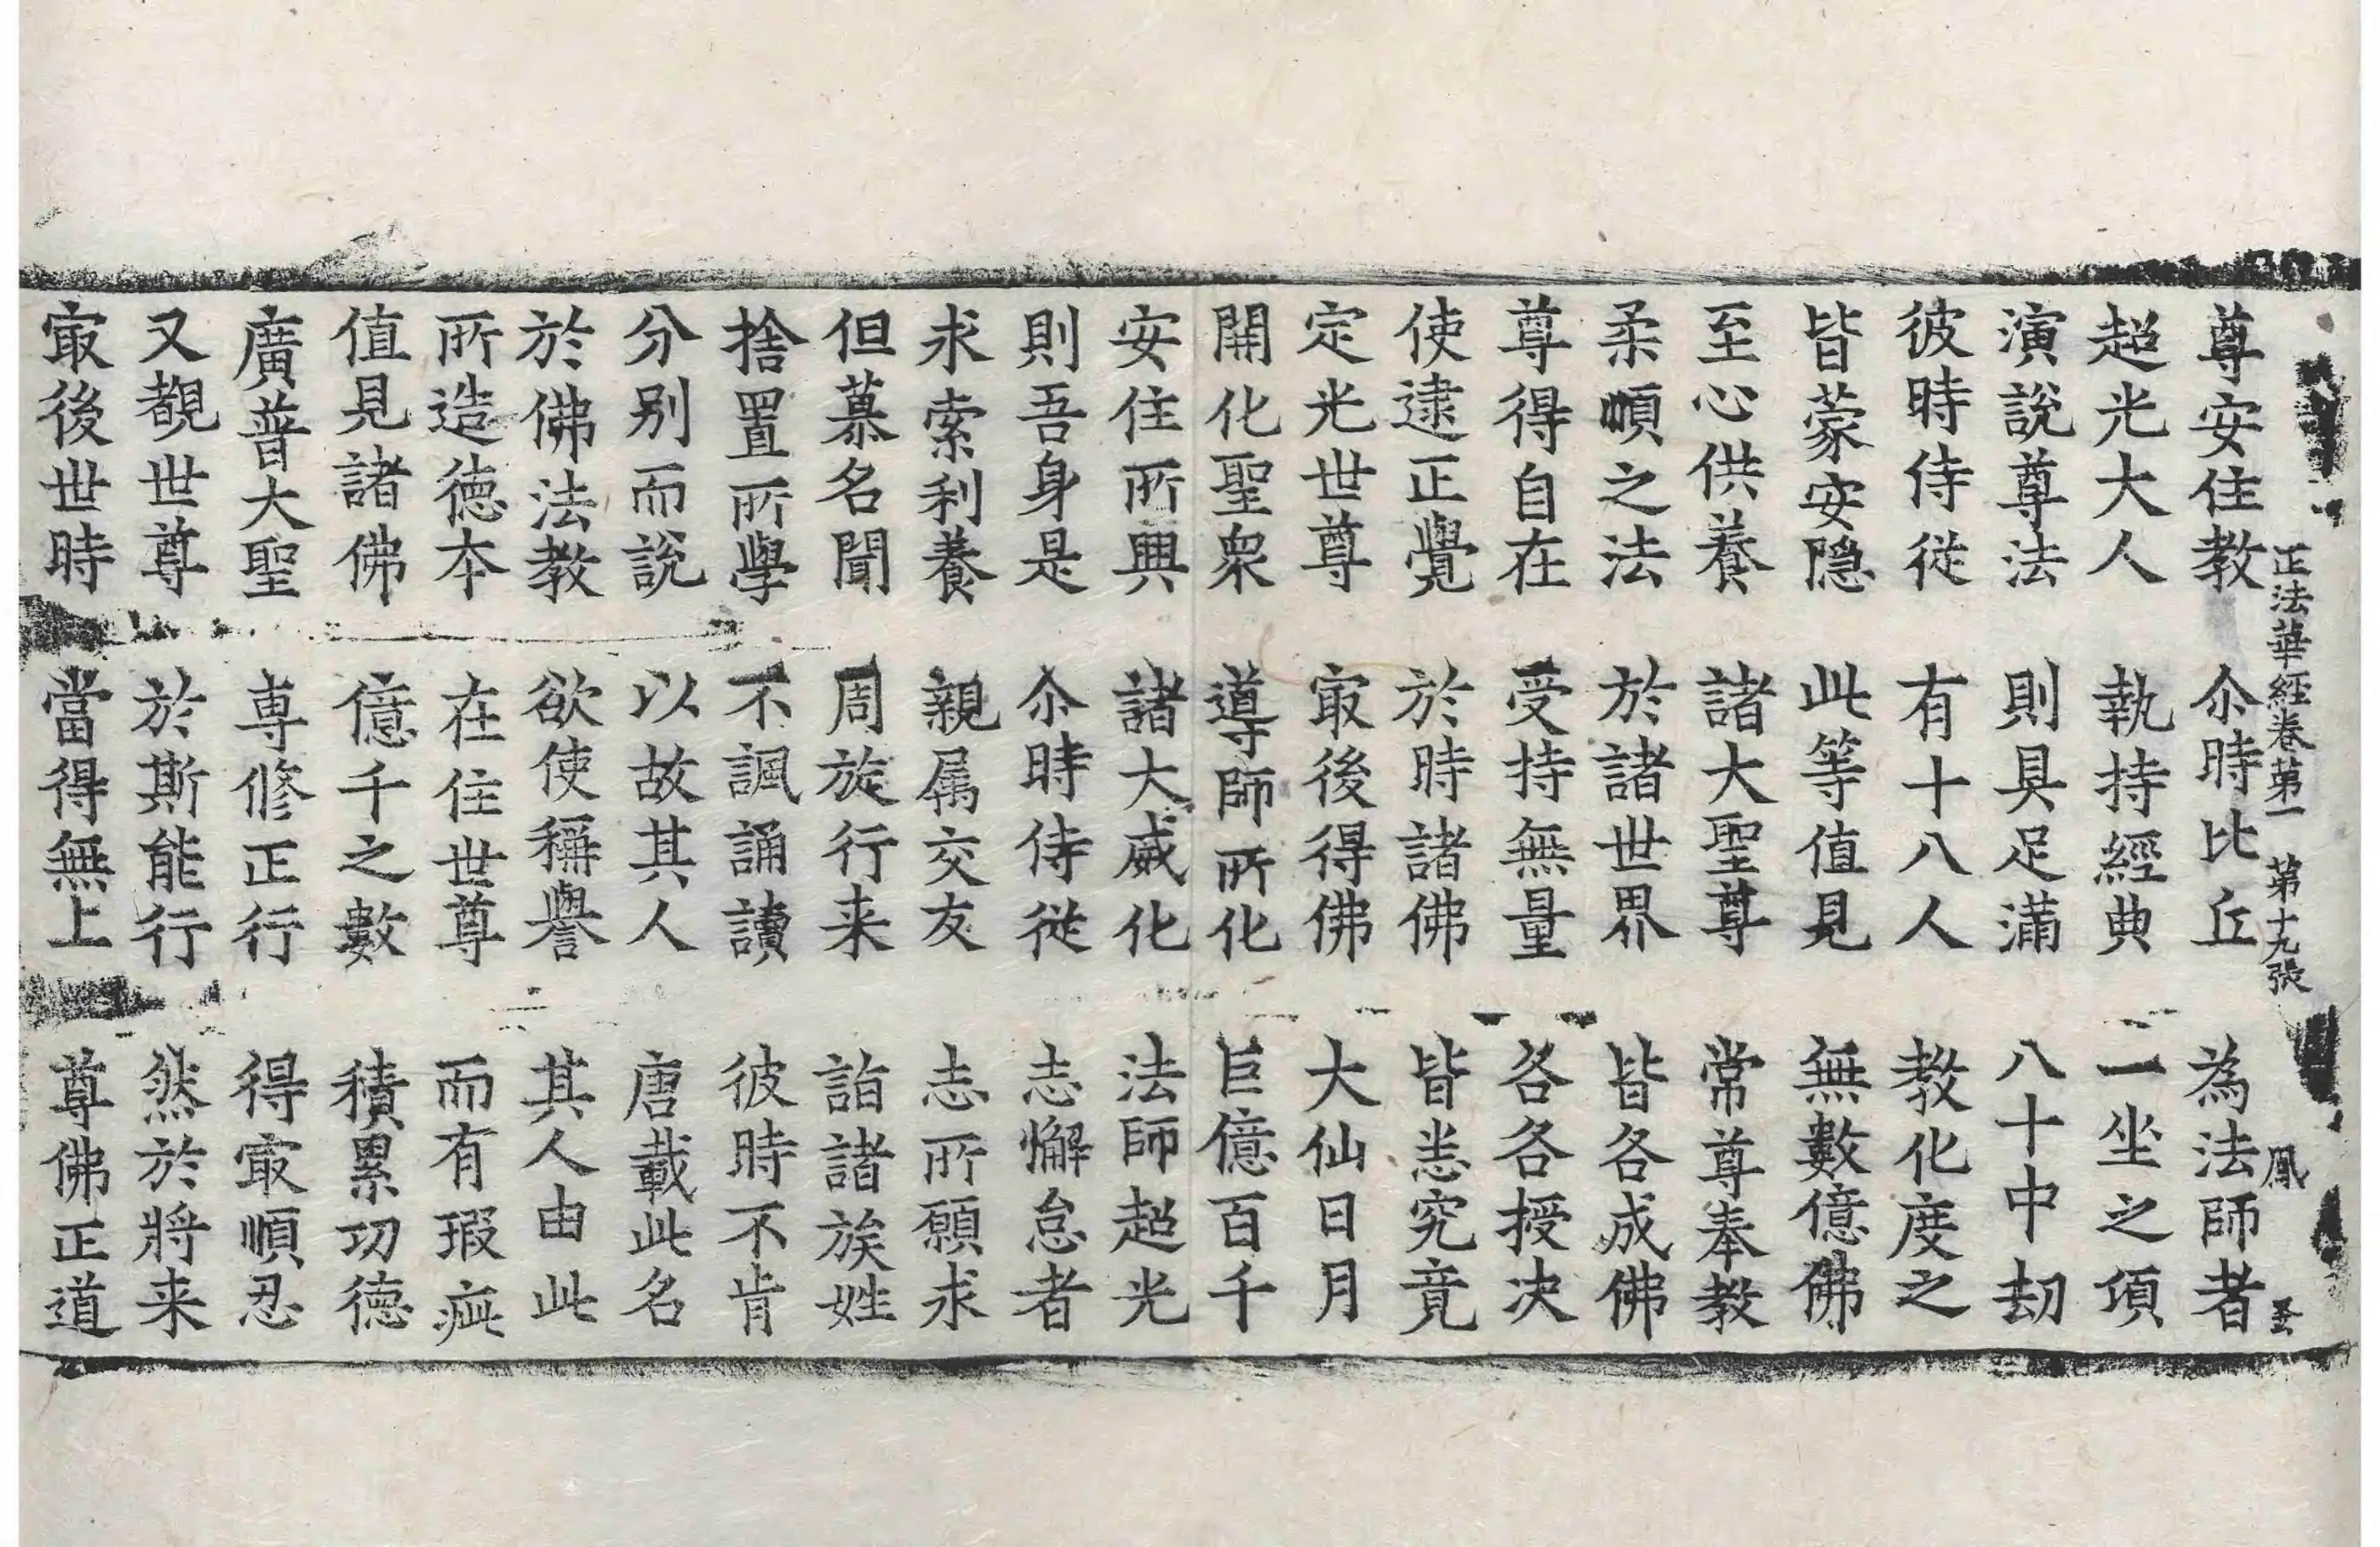 正法華經卷第一 第十九張 鳳
尊安住教 尒時比丘 為法師者
超光大人 執持經典 一坐之頃
演說尊法 則具足滿 八十中劫
彼時侍從 有十八人 教化度之
皆蒙安隱 此等值見 無數億佛
至心供養 諸大聖尊 常尊奉教
柔順之法 於諸世界 皆各成佛
尊得自在 受持無量 各各授决
使逮正覺 於時諸佛 皆恙究竟
定光世尊 㝡後得佛 大仙日月
開化聖衆 導師所化 巨億百千
安住所興 諸大威化 法師超光
則吾身是 尒時侍從 志懈怠者
求索利養 親属交友 志所願求
但慕名聞 周旋行来 詣諸族姓
捨置所學 不諷誦讀 彼時不肯
分别而說 以故其人 唐載此名
於佛法教 欲使稱譽 其人由此
所造德本 在住世尊 而有瑕疵
值見諸佛 億千之數 積累功德
廣普大聖 專修正行 得㝡順忍
又覩世尊 於斯能行 然於將来
㝡後世時 當得無上 尊佛正道